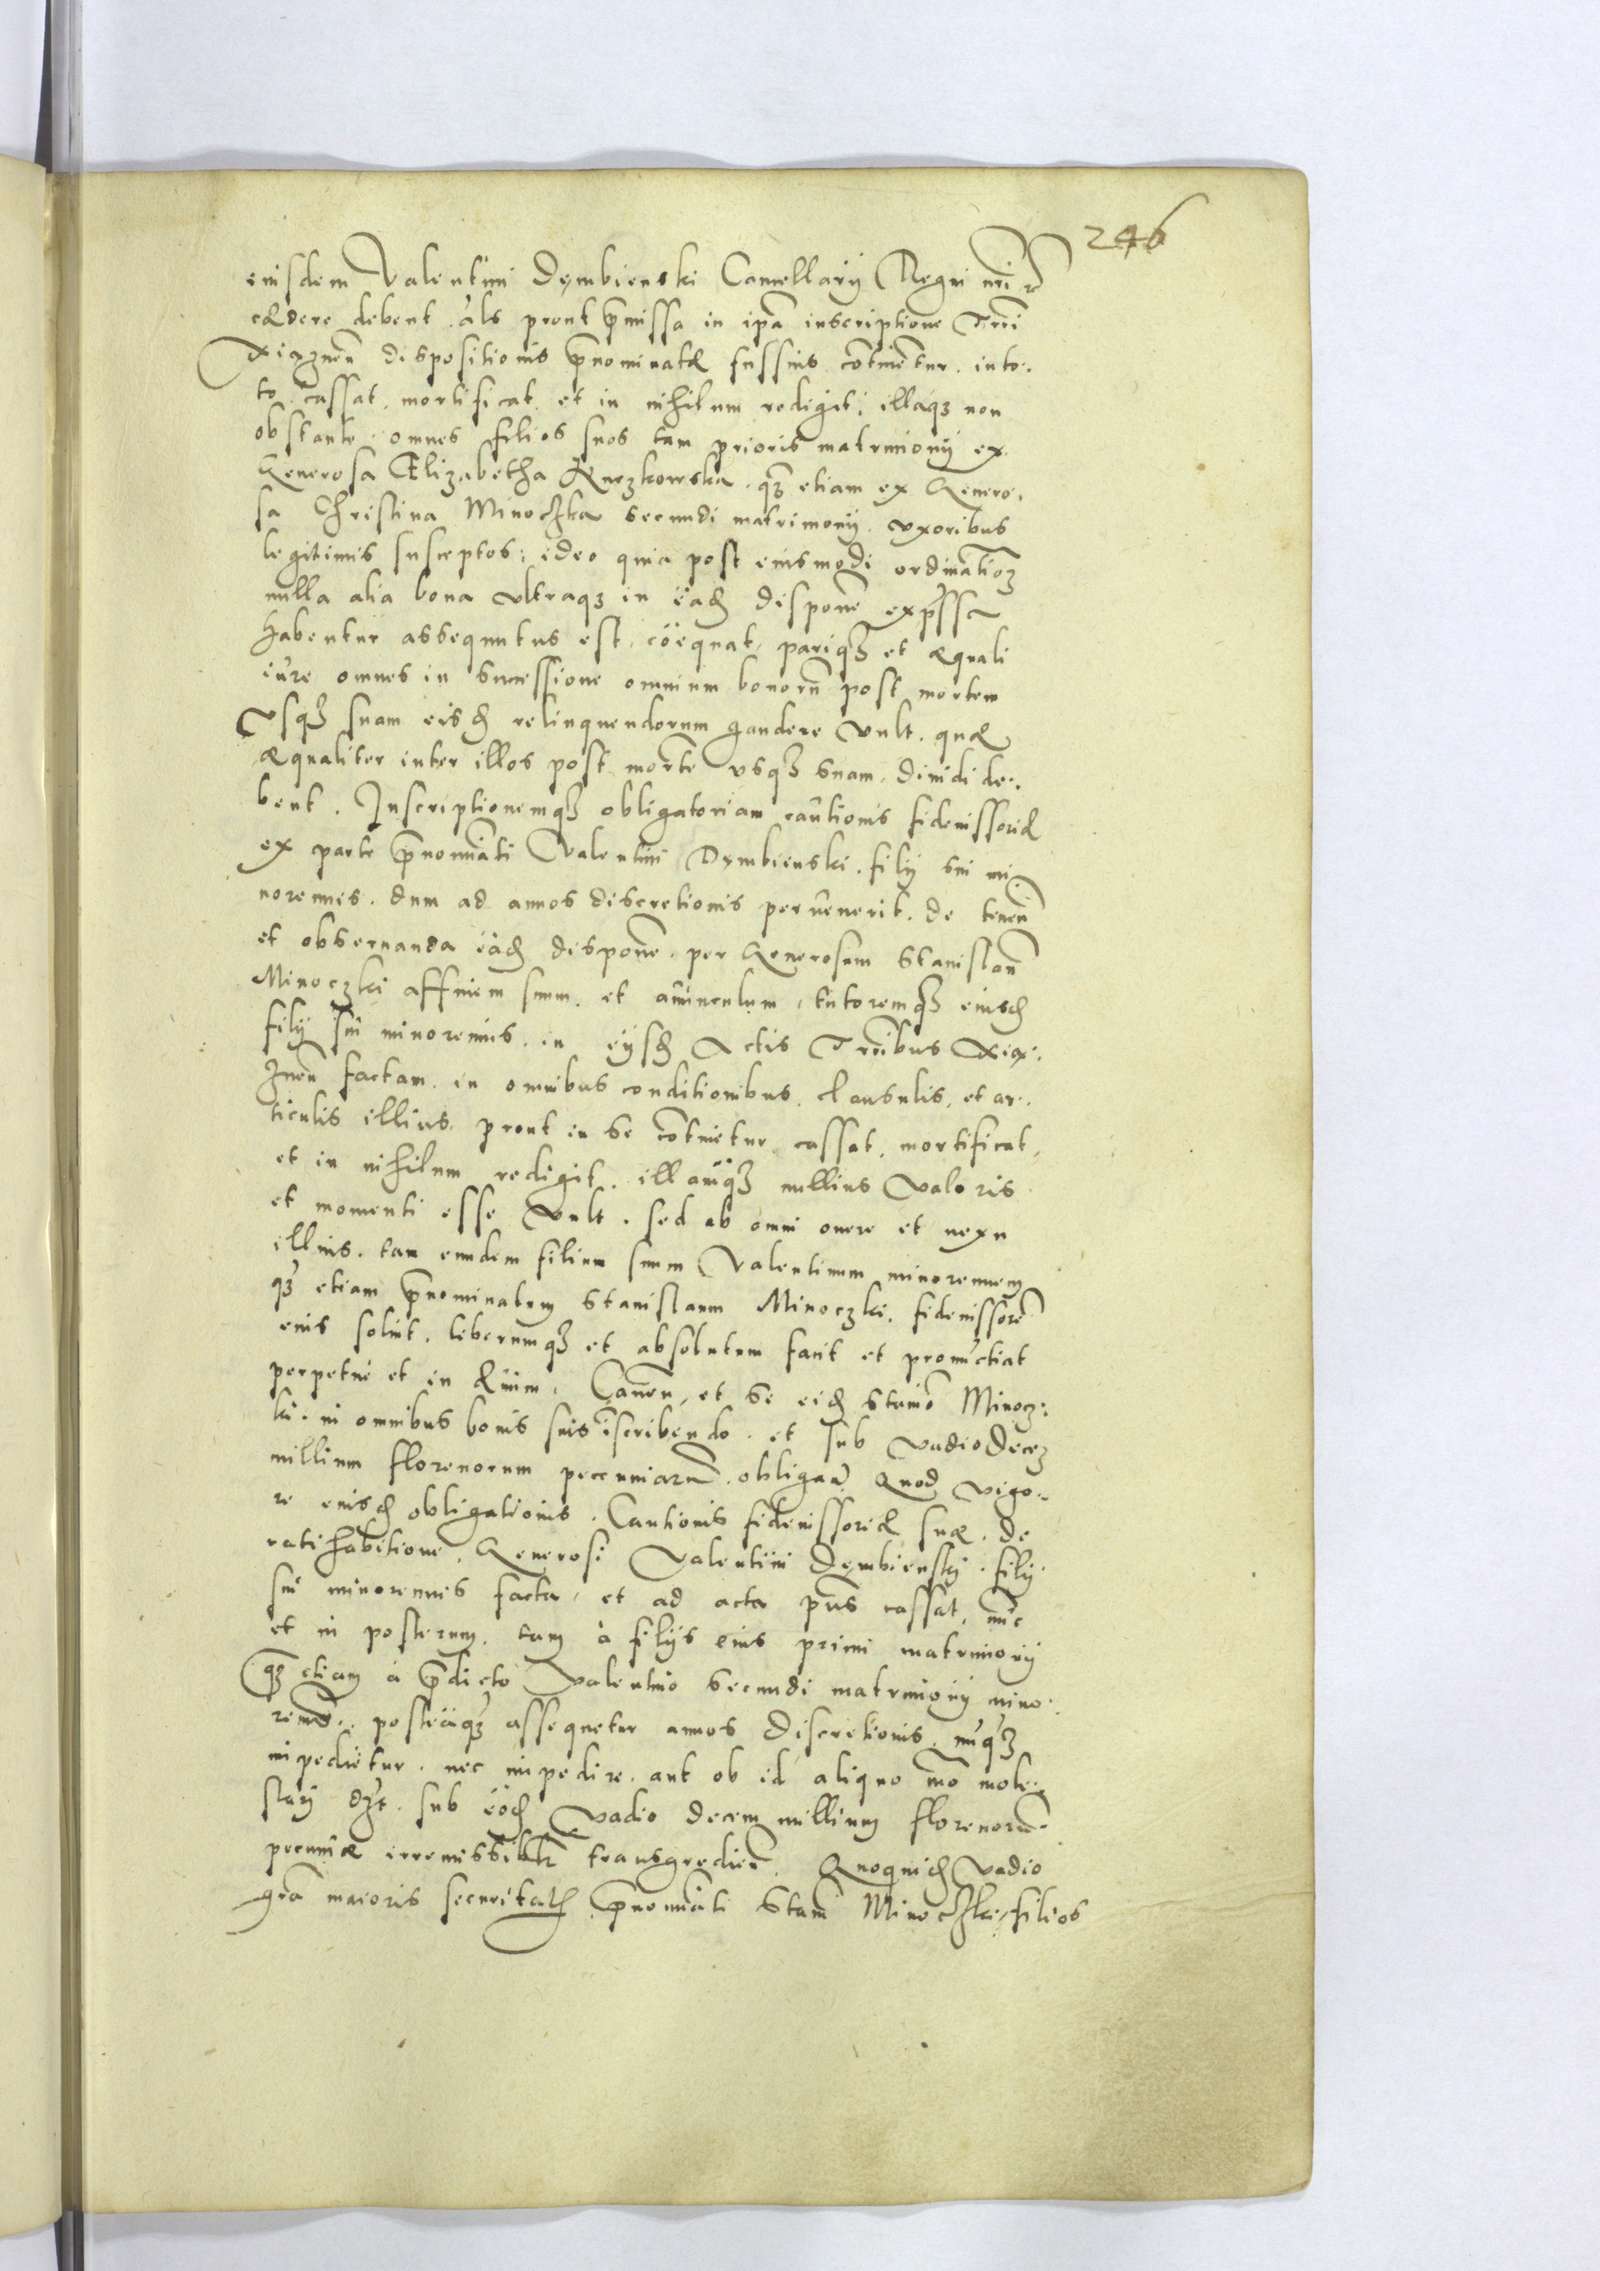 246
eiusdem Valentini Dembienski Cancellarij Regni nri re
cædere debent als prout p̄missa in ipa inscriptione Trri
Xiązznen̄ dispositionis p̄nominatæ fussius cōtinētur. in to:
to cassat mortificat et in nihilum redigit: illaqz non
obstante omnes filios suos tam prioris matrimonij ex
Generosa Elizabetha Kurzkowska qz etiam ex Genero:
sa Christina Minoczka secundi matrimonij uxoribus
legitimis susceptos: ideo quia post eiusmodi ordinatioz
nulla alia bona ultraqz in eād disponē exp̄ssa
habentur assequutus est, cöequat, pariqz et æquali
iure omnes in successione omnium bonorū post mortem
Vsqz suam eisd relinquendorum gaudere vult. quæ
æqualiter inter illos post mortē vsqz suam, diuidi de:
bent. Inscriptionemqz obligatoriam cautionis fideiussoriæ
ex parte p̄nominati Valentini Dembienski filij sui mi
norennis. dum ad annos discretionis peruenerit. de tenen̄
et obseruanda eād disponē per Generosum Stanislaū
Minoczki affinem suum. et auunculum, tutoremqz eiusd
filij sui minorennis. in eijsd Actis Trribus Xiąz:
znen̄ factam. in omnibus conditionibus, clausulis, et ar:
ticulis illius prout in se cōtinetur cassat, mortificat,
et in nihilum redigit. illāqz nullius valoris
et momenti esse vult. sed ab omni onere et nexu
illius. tam eundem filium suum Valentinum minorennem
qz etiam p̄nominatum Stanislaum Minoczki fideiussorē
eius soluit. liberumqz et absolutum facit et pronūctiat
perpetuè et in æuum. Cauen, et se eid Stanō Minocz:
ki. in omnibus bonis suis inscribendo. et sub vadio decez
millium florenorum pecuniarū. obligan̄ Quod vigo:
re eiusd obligationis. Cautionis fideiussoriæ suæ. de
ratihabitione, Generosi Valentini Dembienski filij
sui minorennis facta, et ad acta pn̄s cassat, nūc
et in posterum. tam à filijs eius primi matrimonij
qz etiam à p̄dicto Valentino secundi matrimonij mino:
renne. posteāqz assequetur annos discretionis. nūqz
impedietur. nec impedire. aut ob id aliquo mō mole:
stari dzt. sub eōd vadio decem millium florenorū
pecuniæ irremissibilr transgredien. Quoquid vadio
grā maioris securitatis p̄nominati Stani Minoczki, filios